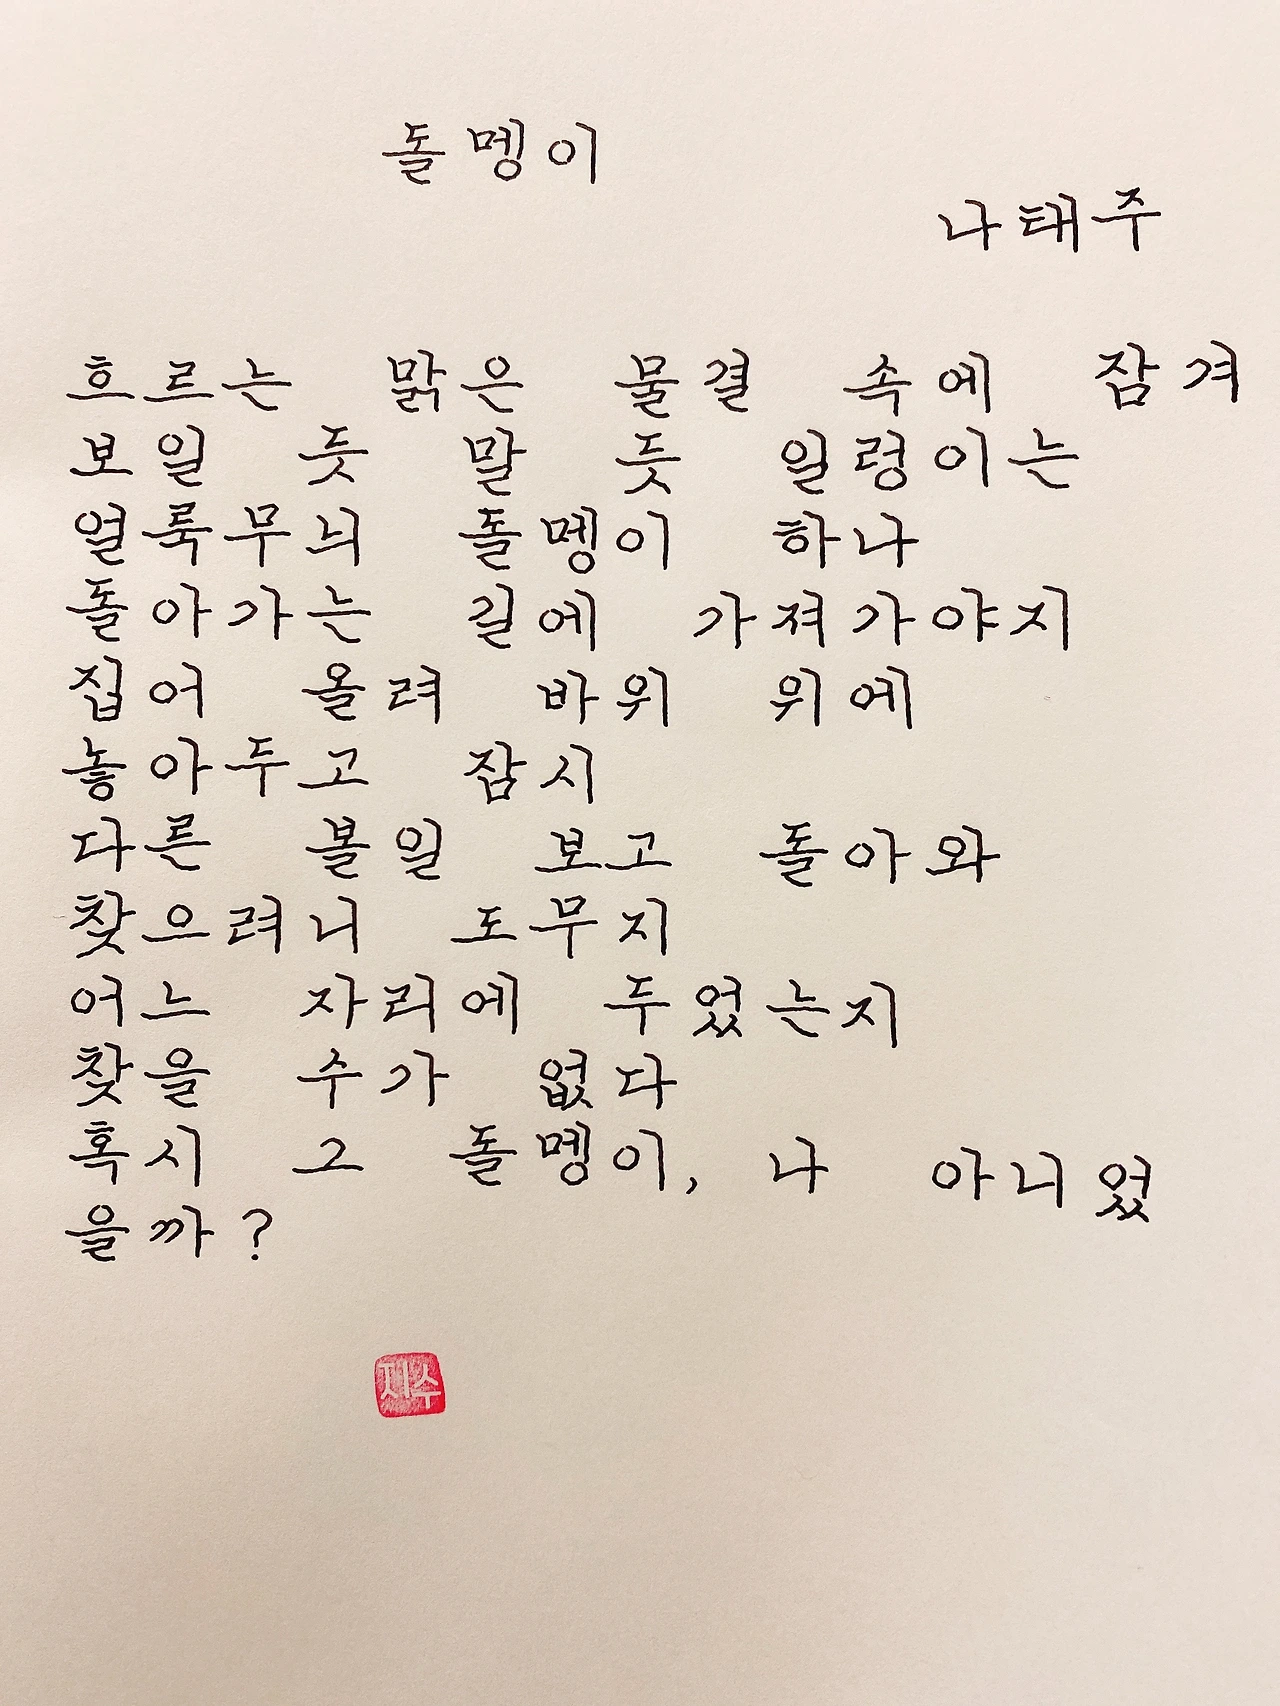 돌멩이
나태주
흐르는 맑은 물결 속에 잠겨
보일 듯 말 듯 일렁이는
얼룩무늬 돌멩이 하나
돌아가는 길에 가져가야지
집어 올려 바위 위에
놓아두고 잠시
다른 볼일 보고 돌아와
찾으려니 도무지
어느 자리에 두었는지
찾을 수가 없다
혹시 그 돌멩이, 나 아니었
을까?
지수